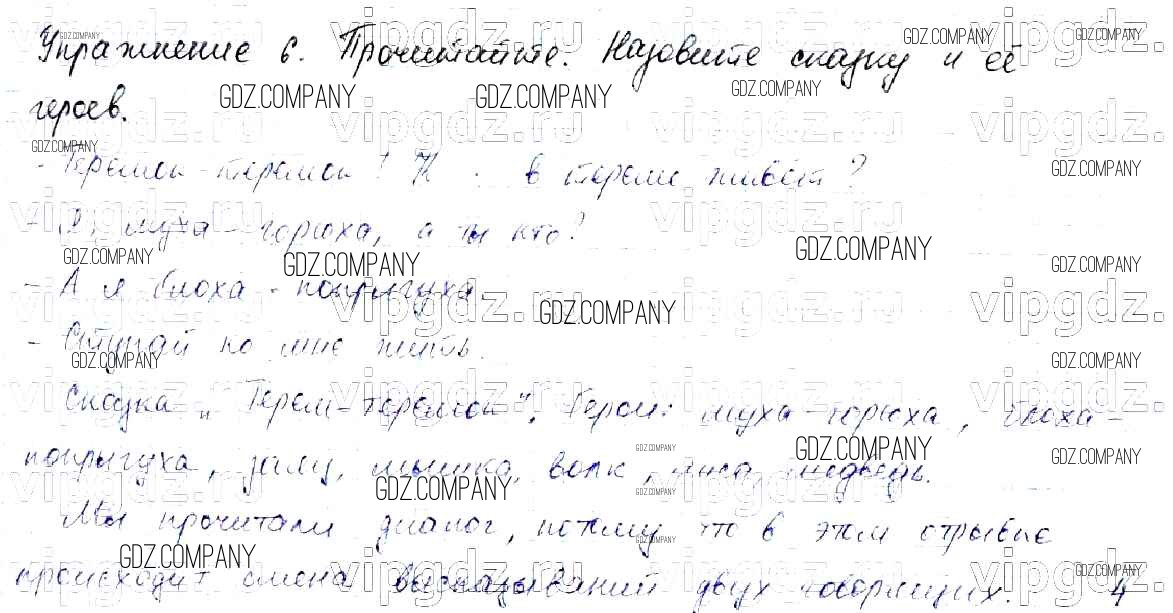 Упражнение 6. Прочитайте. Назовите сказку и её
героев.
- Теремок-теремок! К в тереме живёт?
- Я, муха-горюха, а ты кто?
- А я блоха-попрыгуха.
- Ступай ко мне жить.
Сказка „Терем-теремок". Герои: муха-горюха, блоха-
попрыгуха, заяц, мышка, волк, лиса, медведь.
Мы прочитали диалог, потому что в этом отрывке
происходит смена высказываний двух говорящих.
4
GDZ.COMPANY
vipgdz.ru